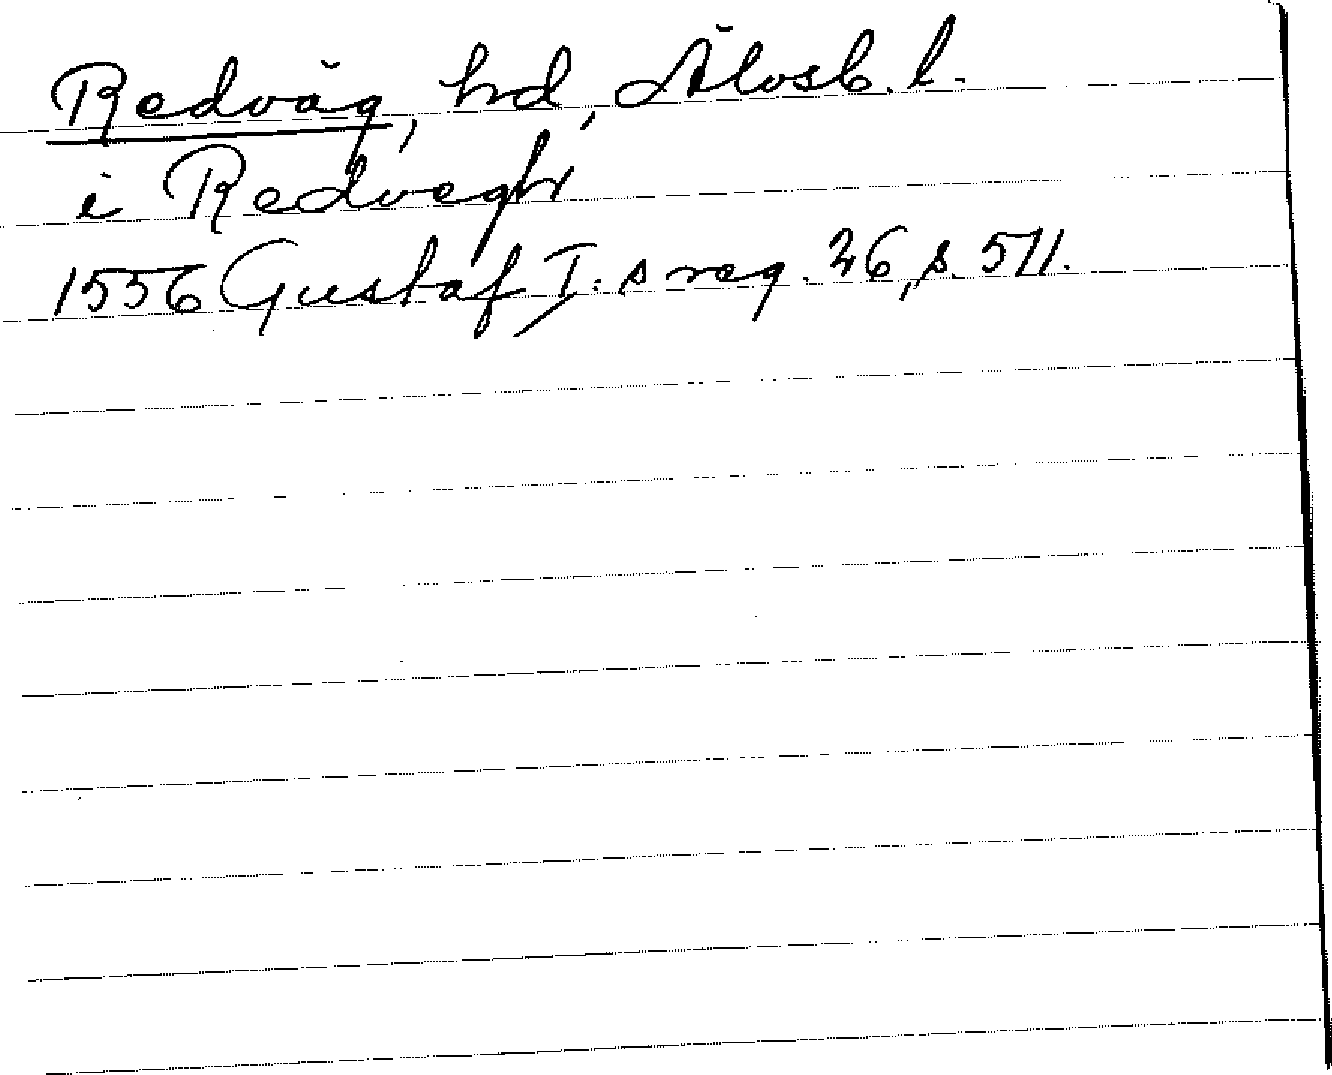 Redväg, hd, Älvsb. l.
i Redvegh
1556 Gustaf I:s reg. 26, s. 511.